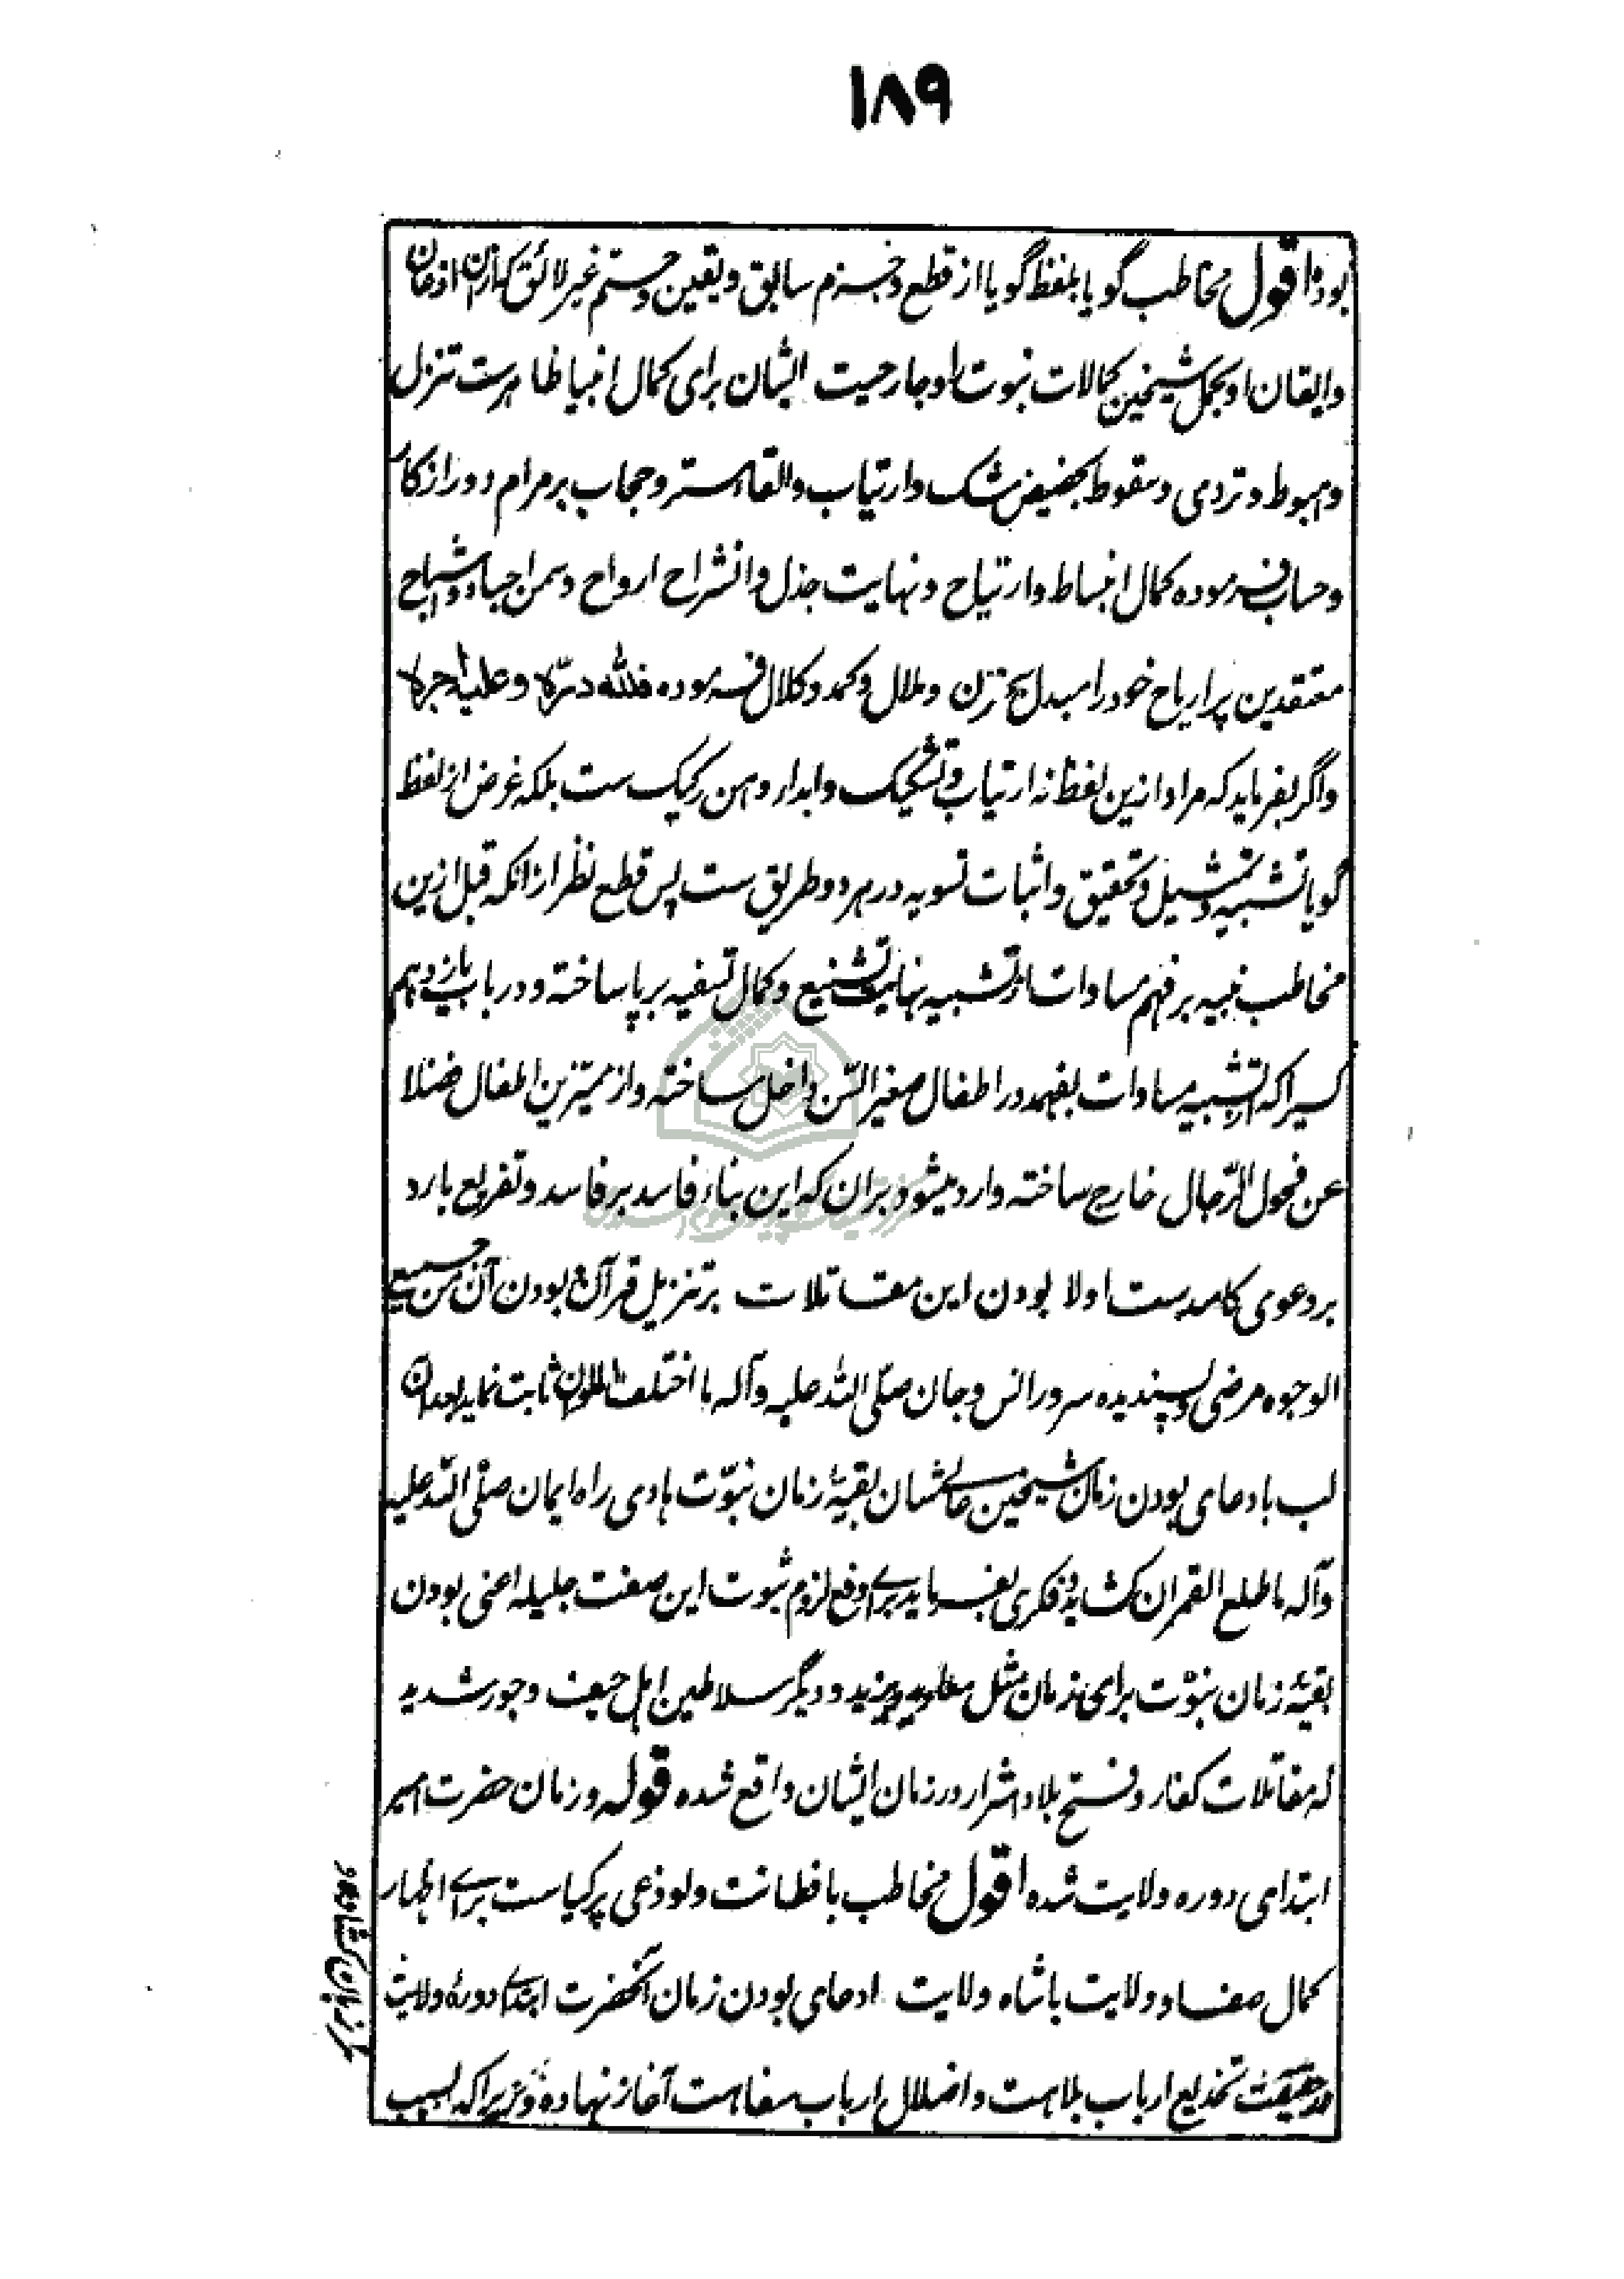 ۱۸۹
بودند اقول مخاطب گویا بلفظ گویا از قطع و جزم سابق و یقین و حتم غیر لائق که ازان اذعان
و ایقان او بحمل شیخین کمالات نبوت را و جارحیت ایشان برای کمال انبیا ظاهرست تنزل
و هبوط و تردی و سقوط بحضیض شک و ارتیاب و القاء ستر و حجاب بر مرام دور از کار
و حساب فرموده کمال انبساط و ارتیاح و نهایت جذل و انشراح ارواح و سمن اجساد و اشباح
معتقدین پر ارباح خود را مبدل بتحزن و ملال و کمد و کلال فرموده فلله درّه و علیه اجره
و اگر بفرماید که مراد ازین لفظ نه ارتیاب و تشکیک و ابداء وهن رکیک ست بلکه غرض از لفظ
گویا تشبیه و تمثیل و تحقیق و اثبات تسویه در هر دو طریق ست پس قطع نظر از انکه قبل ازین
مخاطب نبیه بر فهم مساوات از تشبیه نهایت تشنیع و کمال تسفیه بر پا ساخته و در باب یازدهم
کسیرا که از تشبیه مساوات بفهمد در اطفال صغیر السّن داخل ساخته و از ممیّزین اطفال فضلا
عن فحول الرّجال خارج ساخته وارد میشود بران که این بناء فاسد بر فاسد و تفریع بارد
بر دعوی کاسدست اولا بودن این مقاتلات بر تنزیل قرآن و بودن آن من جمیع
الوجوه مرضی و پسندیده سرور انس و جان صلّی الله علیه و آله ما اختلف الملوان ثابت نماید بعد ازان
لب بادعای بودن زمان شیخین عالیشان بقیّهٔ زمان نبوّت هادی راه ایمان صلّی الله علیه
و آله ما طلع القمران کشاید و فکری بفرماید برای دفع لزوم ثبوت این صفت جلیله اعنی بودن
بقیّهٔ زمان نبوّت برای زمان مثل معاویه و یزید و دیگر سلاطین اهل حیف و جور شدید
که مقاتلات کفار و فتح بلاد اشرار در زمان ایشان واقع شده قوله و زمان حضرت امیر
ابتدای دوره ولایت شده اقول مخاطب با فطانت و لوذعی پر کیاست برای اظهار
کمال صفا و ولایت با شاه ولایت ادعای بودن زمان آنحضرت ابتدای دورهٔ ولایت
در حقیقت تخدیع ارباب بلاهت و اضلال ارباب سفاهت آغاز نهاده زیرا که بسبب